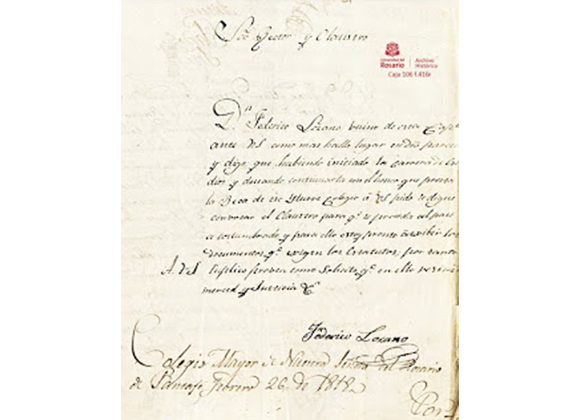 Sor. Rector y Claustro
Universidad del
Rosario
Archivo
Histórico
Caja 106 f.416r
Dn. Federico Lozano vecino de esta
ante VS como mas halla lugar en dro
y digo que, habiendo iniciado la carrera de
dios y deseando continuarla con el honor que presta
la Beca de ese Ilustre Colegio á VS pido se digne
convocar el Claustro para qe. se proceda al
acostumbrado y para ello estoy pronto á exibir los
documentos qe. exigen los Estatutos, por tanto
A VS suplico provea como solicito qe. en ello
merced y Justicia &
Federico Lozano
Colegio Mayor de Nuestra Señora del Rosario
de Santafe, Febrero 26, de 1818,,